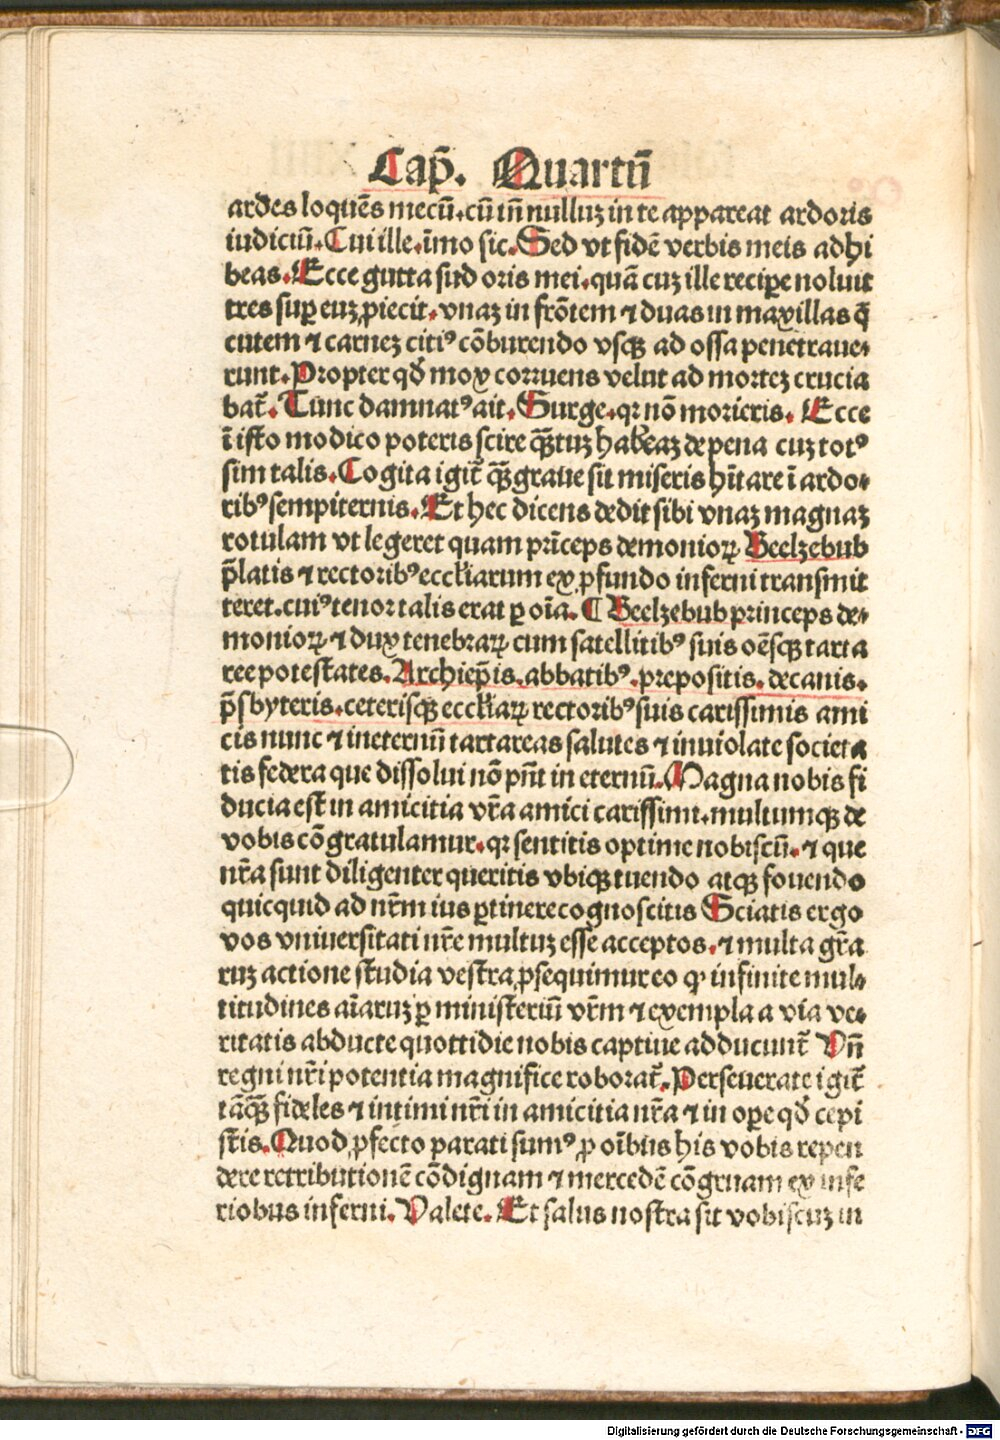 Cap̄. Quartū
ardes loquēs mecū.cū iñ nulluz in te appareat ardoris
iudiciū.Cui ille.īmo sic.Sed vt fidē verbis meis adhi
beas.Ecce gutta sud oris mei.quā cuz ille recipe noluit
tres sup euz ꝓiecit.vnaz in frōtem ⁊ duas in maxillas q̄
cutem ⁊ carnez citiꝰ cōburendo vsqꝫ ad ossa penetraue⸗
runt.Propter qđ mox corruens velut ad mortez crucia
bat̄.Tunc damnatꝰ ait.Surge.qꝛ nō morieris. Ecce
ī isto modico poteris scire q̄ꝫtuz habeaz de pena cuz totꝰ
sim talis.Cogita igit̄ q̄ꝫ graue sit miseris hītare ī ardo⸗
ribꝰ sempiternis.Et hec dicens dedit sibi vnaz magnaz
rotulam vt legeret quam prīceps demonioꝝ Beelzebub
p̄latis ⁊ rectoribꝰ eccłiarum ex ꝓfundo inferni transmit
teret.cuiꝰ tenor talis erat ꝑ oīa. ¶ Beelzebub princeps de⸗
monioꝝ ⁊ dux tenebraꝝ cum satellitibꝰ suis oēsqꝫ tarta
ree potestates.Archiep̄is.abbatibꝰ.prepositis.decanis.
p̄sbyteris.ceterisqꝫ eccłiaꝝ rectoribꝰ suis carissimis ami
cis nunc ⁊ ineternū tartareas salutes ⁊ inuiolate societa
tis federa que dissolui nō pn̄t in eternū.Magna nobis fi
ducia est in amicitia vr̄a amici carissimi.multumqꝫ de
vobis cōgratulamur.qꝛ sentitis optime nobiscū.⁊ que
nr̄a sunt diligenter queritis vbiqꝫ tuendo atqꝫ fouendo
quicquid ad nr̄m ius ꝑtinere cognoscitis Sciatis ergo
vos vniuersitati nr̄e multuz esse acceptos.⁊ multa gr̄a
ruz actione studia vestra ꝓsequimur eo ꝙ infinite mul⸗
titudines aīaruz ꝑ ministeriū vr̄m ⁊ exempla a via ve⸗
ritatis abducte quottidie nobis captiue adducunt̄ Vn̄
regni nr̄i potentia magnifice roborat̄.Perseuerate igit̄
tāq̄ꝫ fideles ⁊ intimi nr̄i in amicitia nr̄a ⁊ in oꝑe qđ cepi
stis.Quod ꝓfecto parati sumꝰ ꝓ oībus his vobis repen
dere retributionē cōdignam ⁊ mercedē cōgruam ex infe
rioribus inferni.Valete.Et salus nostra sit vobiscuz in
Digitalisierung gefördert durch die Deutsche Forschungsgemeinschaft - DFG